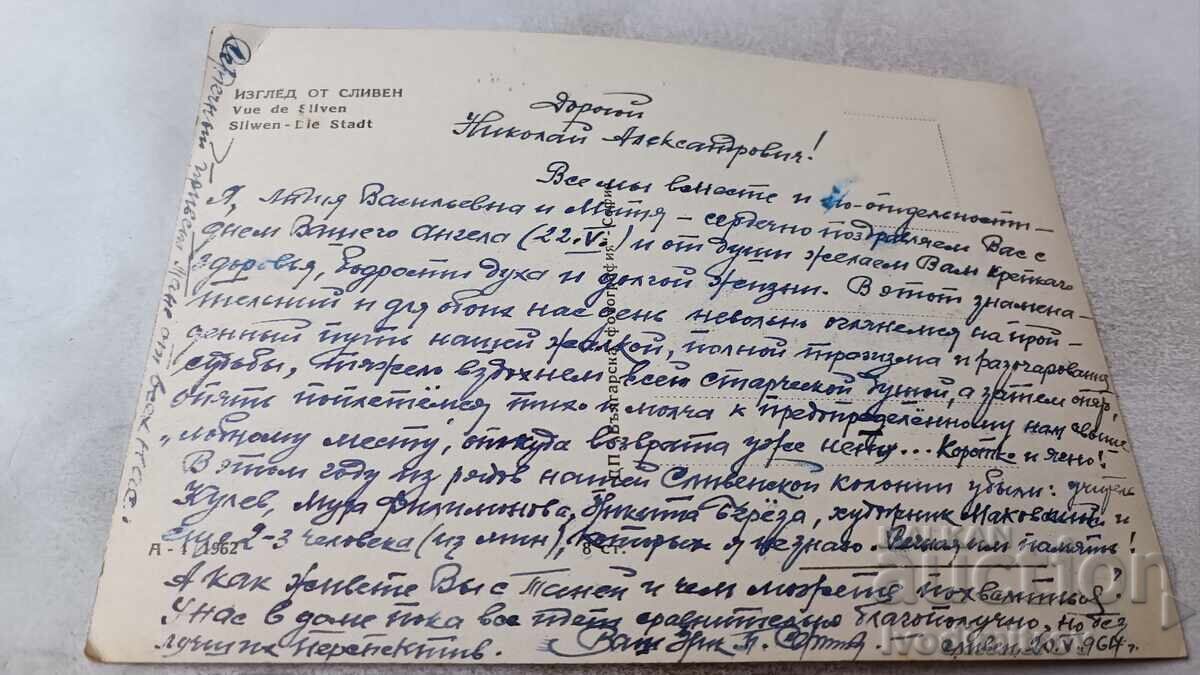 ИЗГЛЕД ОТ СЛИВЕН
Vue de Sliven
Sliwen - Die Stadt
Дорогой
Николай Александрович!
Все мы вместе и по-отдельности -
Я, Лидия Васильевна и Митя - сердечно поздравляем Вас с
днем Вашего Ангела (22.V.) и от души желаем Вам крепкаго
здоровья, бодрости духа и долгой жизни. В этот знамена-
тельный и для обоих нас день невольно оглянемся на прой-
денный путь нашей жалкой, полной трагизма и разочарования
судьбы, тяжело вздохнем всей старческой душой, а затем
опять поплетёмся тихо и молча к предопределённому нам свыше
„лобному месту", откуда возврата уже нету... Коротко и ясно!
В этом году из рядов нашей Сливенской колонии убыли: учитель
Кулев, Мура Филимонова, Никита Берёза, художник Маковский и
еще 2-3 человека (из мин), которых я не знаю. Вечная им память!
А как живете Вы с Таней и чем можете похвалиться?
У нас в доме пока все идет сравнительно благополучно, но без
лучших перспектив. Ваш
Сливен, 20.V.964 г.
Сердечный привет Тане от всех нас.
А - 1 1962
8 ст.
ДП „Българска фотография" - София
BALKAN
auction